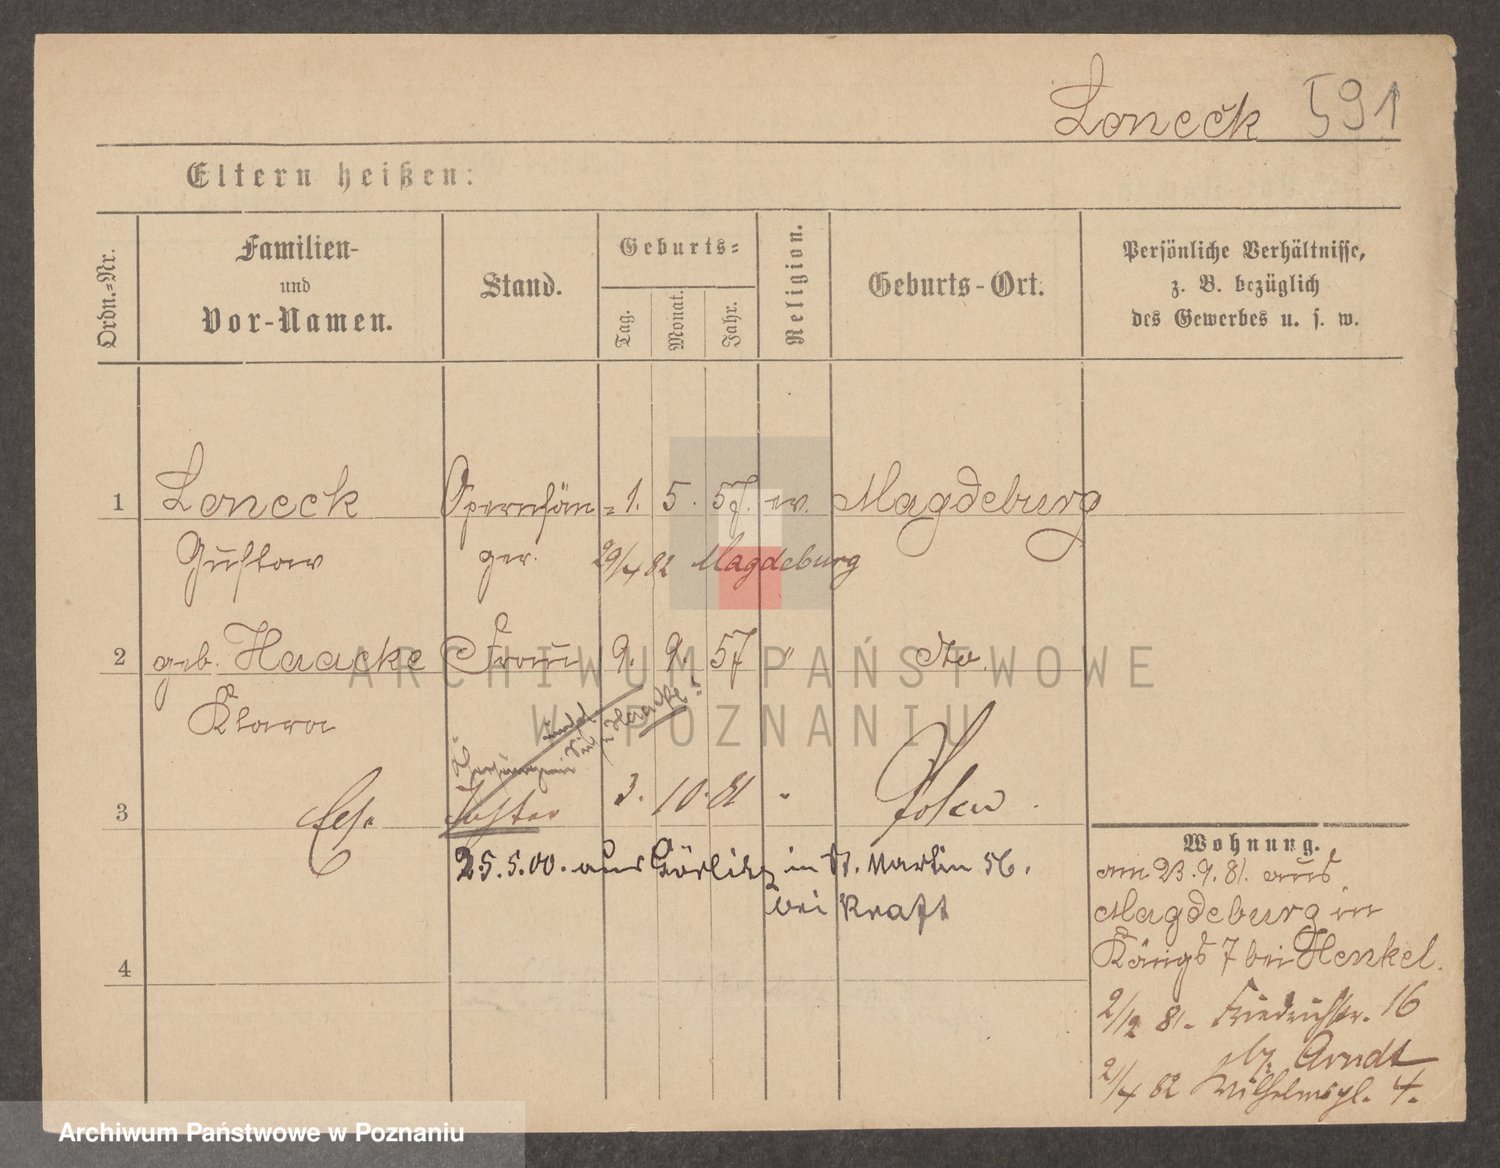 Loneck 591
Eltern heißen:
Ordn.-Nr.
Familien-
und
Vor-Namen.
Stand.
Geburts-
Tag.
Monat.
Jahr.
Religion.
Geburts-Ort.
Persönliche Verhältnisse,
z. B. bezüglich
des Gewerbes u. s. w.
1 Loneck Opernsän= 1. 5. 57. ev. Magdeburg
Gustav ger. 29/4 82 Magdeburg
2 geb. Haacke Frau 9. 9. 57 " dto.
Klara
3 Tochter 3. 10. 81 " Posen
25.5.00. aus Görlitz in St. Martin 56.
bei Kraft
4
Wohnung.
am 23.9.81. aus
Magdeburg in
Königs 7 bei Henkel.
2/12 81. Friedrichstr. 16
bei Arndt
2/4 82 Wilhelmspl. 4.
ARCHIWUM PAŃSTWOWE
W POZNANIU
Archiwum Państwowe w Poznaniu